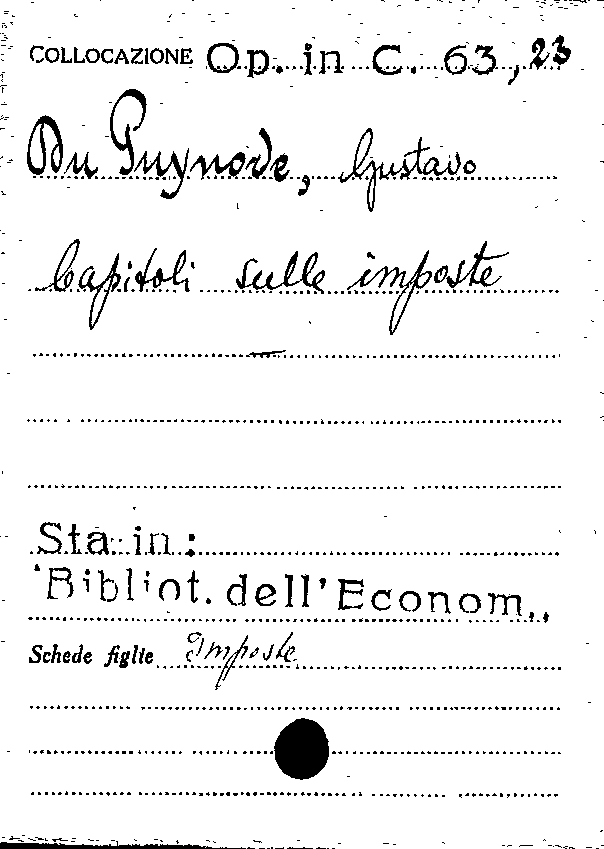 COLLOCAZIONE Op. in C. 63, 23
Du Puynode, Gustavo
Capitoli sulle imposte
Sta in:
"Bibliot. dell'Econom.,,
Schede figlie Imposte